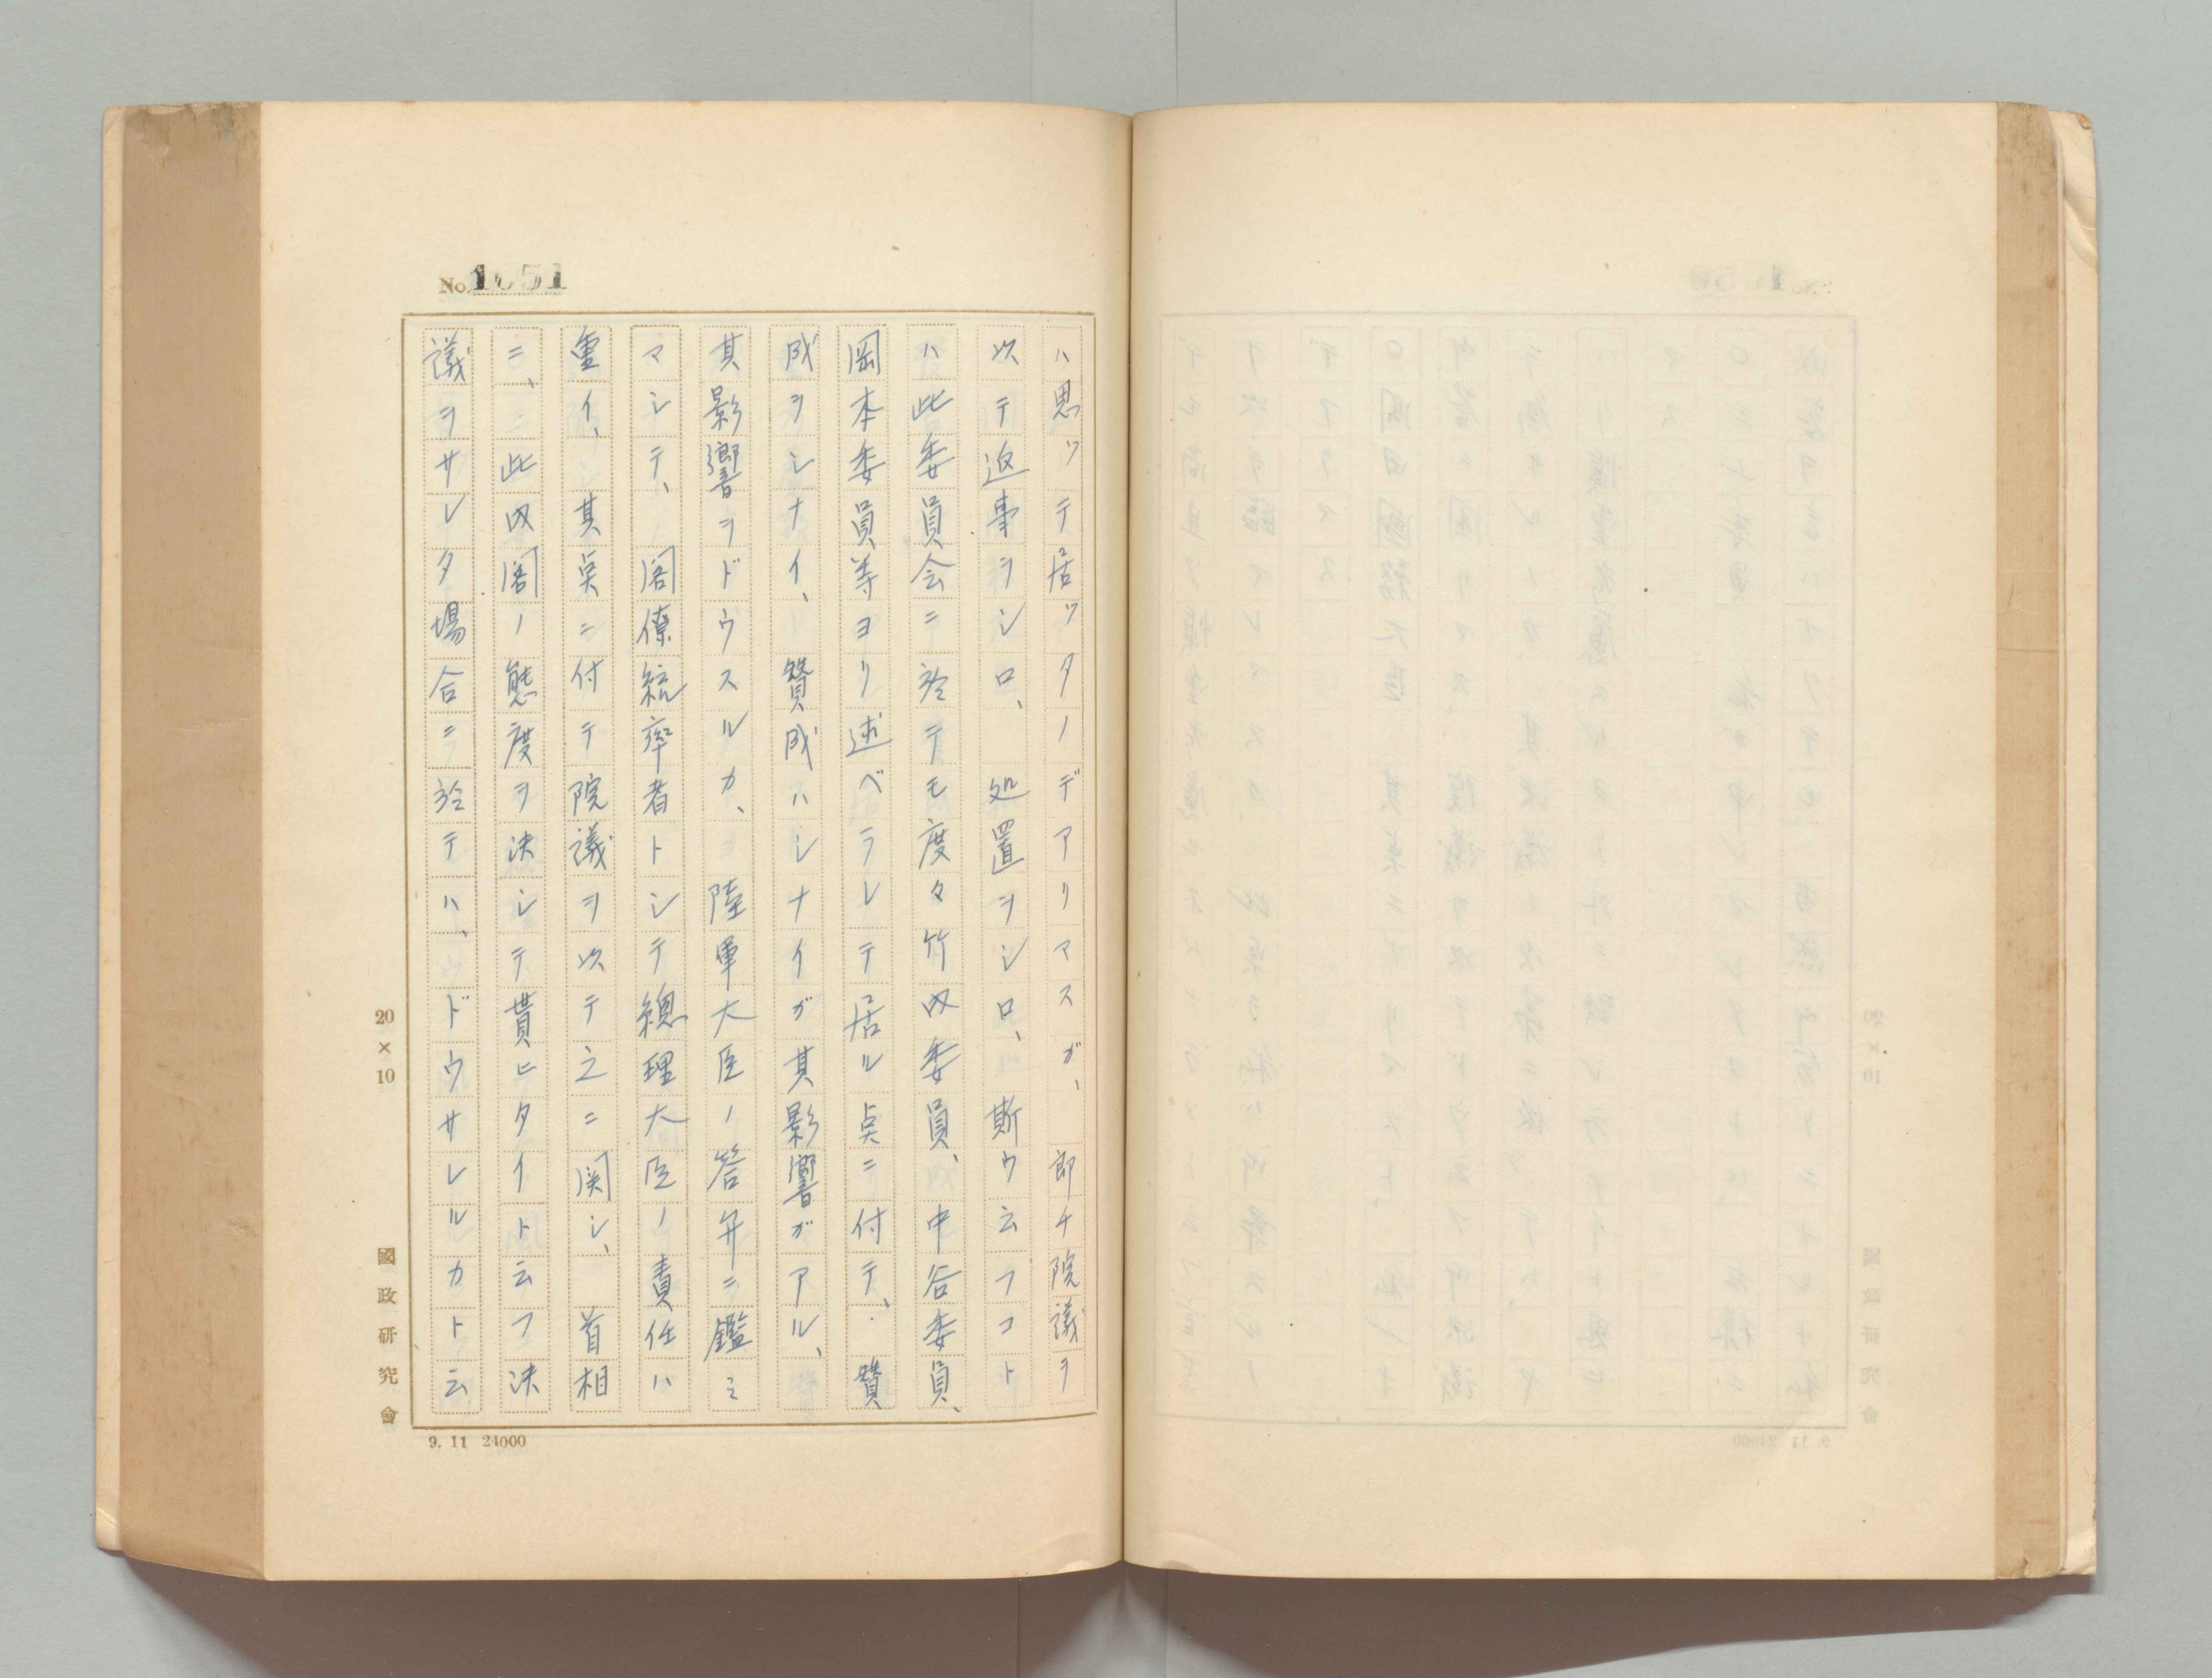 No. 1051
ハ思ツテ居ツタノデアリマスガ、即チ院議ヲ
以テ返事ヲシロ、処置ヲシロ、斯ウ云フコト
ハ此委員会ニ於テモ度々竹内委員、中谷委員、
岡本委員等ヨリ述ベラレテ居ル点ニ付テ、賛
成ヲシナイ、賛成ハシナイガ其影響ガアル、
其影響ヲドウスルカ、陸軍大臣ノ答弁ニ鑑ミ
マシテ、閣僚統率者トシテ總理大臣ノ責任ハ
重イ、其点ニ付テ院議ヲ以テ之ニ関シ、首相
ニ、此内閣ノ態度ヲ決シテ貰ヒタイト云フ決
議ヲサレタ場合ニ於テハ、ドウサレルカト云
20×10
國政研究會
9. 11 24000